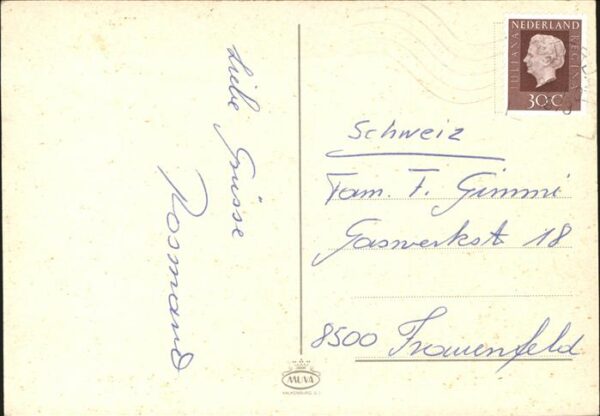 Liebe Grüsse
Rosmarie
NEDERLAND
JULIANA
REGINA
30C
Schweiz
Fam. F. Gimmi
Gaswerkst 18
8500 Frauenfeld
MUVA
VALKENBURG